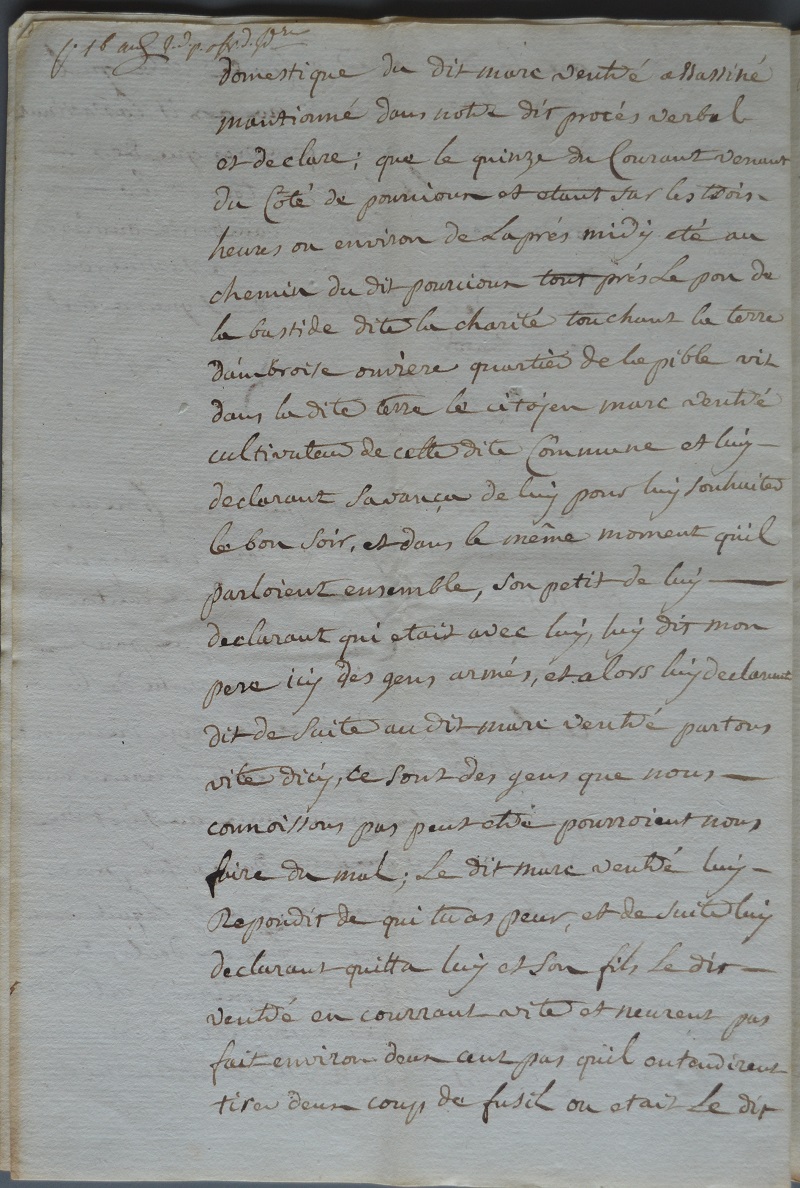 domestique du dit marc ventré assassiné
mantionné dans notre dit procés verbal
et declare; que le quinze du Courant venant
du Coté de pourcioux et etant sur les trois
heures ou environ de Laprés midÿ eté au
chemin du dit pourcioux tout prés Le pon de
la bastide dite la charité touchant la terre
d'ambroise ouviere quartier de la pible vit
dans la dite terre le citoyen marc ventré
cultivateur de cette dite Commune et luÿ —
declarant savança de luÿ pour luÿ souhaiter
le bon soir, et dans le même moment qu'il
parloient ensemble, son petit de luÿ —
declarant qui etait avec luÿ, luÿ dit mon
pere icÿ des gens armés, et alors luÿ declarant
dit de suite au dit marc ventré partons
vite dicÿ, ce sont des gens que nous —
connoissons pas peut etre pourroient nous
faire du mal; Le dit marc ventré luÿ —
Repondit de qui tu as peur, et de suite luÿ
declarant quitta luÿ et son fils Le dit —
ventré en courrant vite et neurent pas
fait environ deux cent pas qu'il entendirent
tirer deux coup de fusil ou etait Le dit